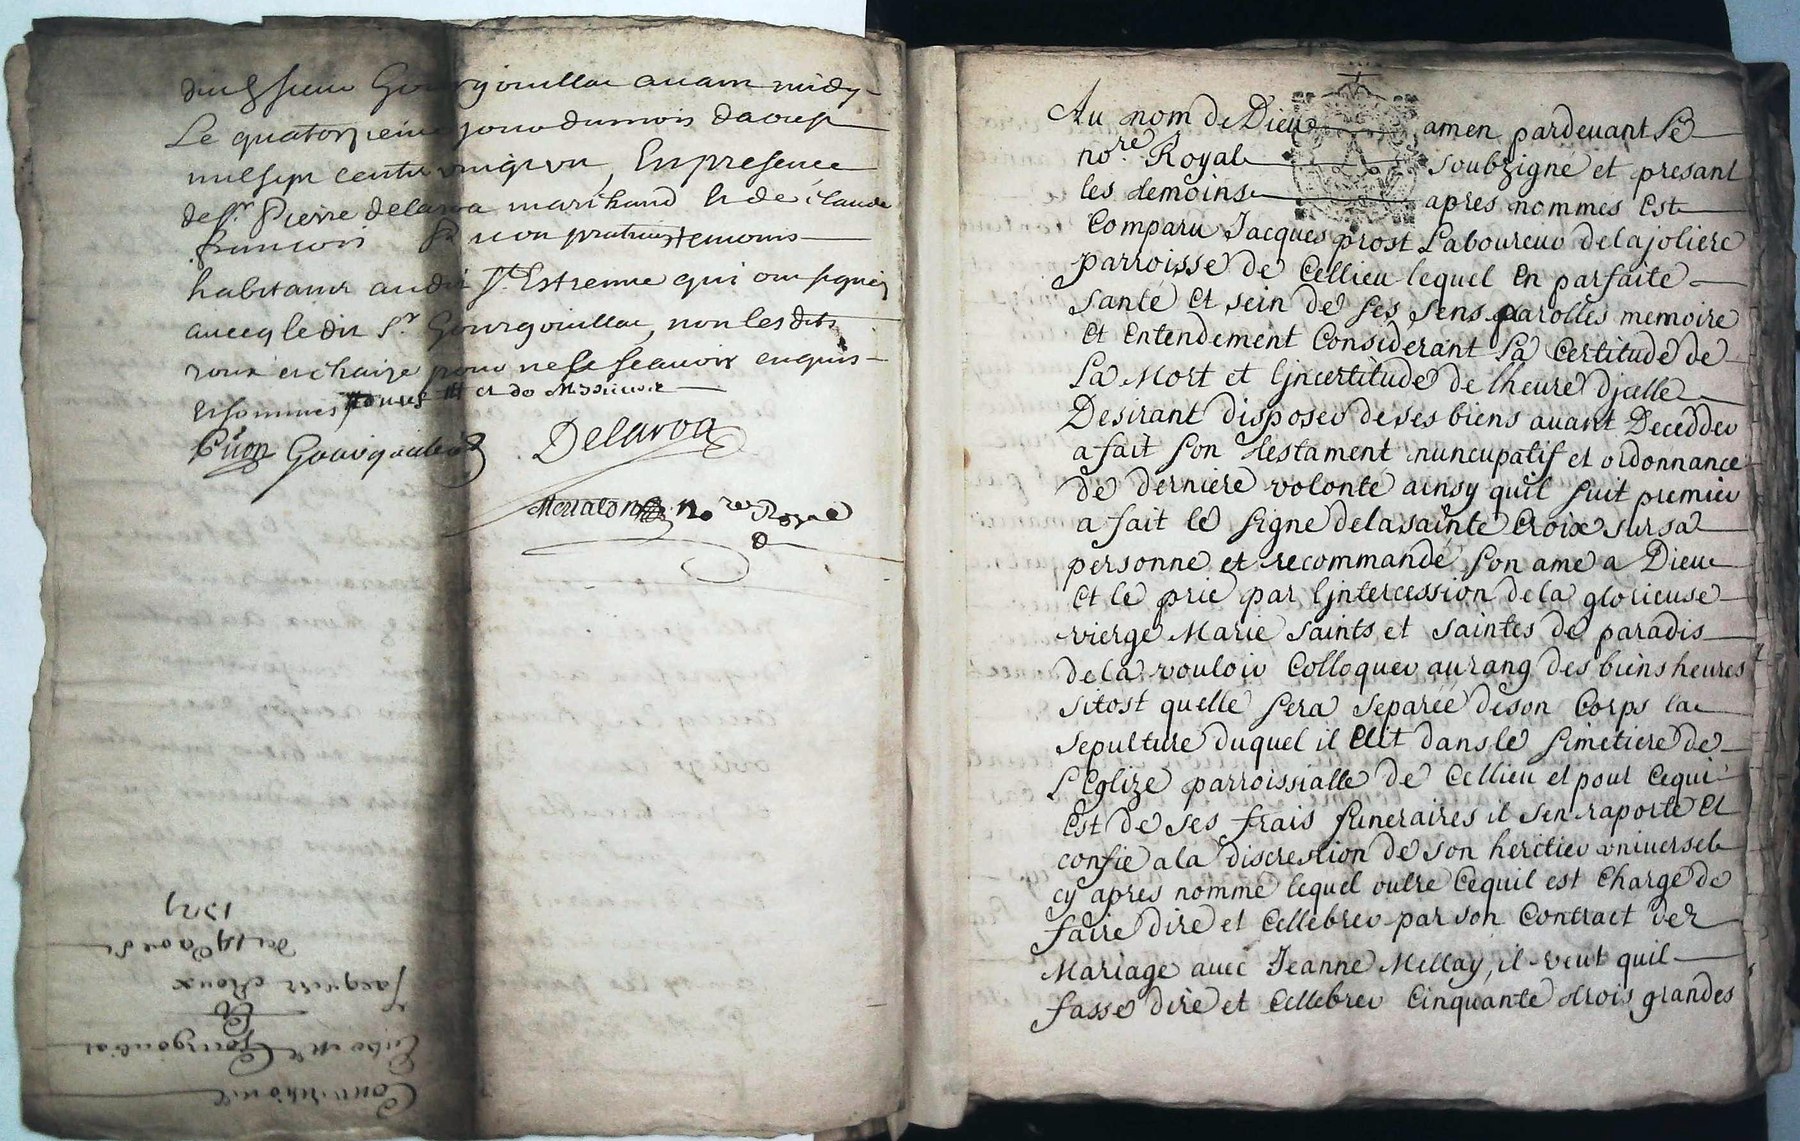 sieur Gourgouillat avant midy
Le quatorzeine jour du mois daoust
mil sept cents vingt un, En presence
de Sr. Pierre delaroa marchand & de Claude
francois praticien temoins
habitants audit St. Estienne qui ont signéz
avecq le dit Sr Gourgouillat, non les dits
roux et chaize pour ne le scavoir enquis
et sommes
Delaroa
no re Royal
Au nom de Dieu amen pardevant Le
no.re Royal soubzigné et presant
les temoins apres nommes Est
Comparu Jacques prost Laboureur de la joliere
parroisse de Cellieu lequel En parfaite
santé Et sein de ses sens parolles memoire
Et Entendement Considerant La Certitude de
La Mort et Ljncertitude de lheure Djcelle
Desirant disposer de ses biens avant Decedder
a fait son testament nuncupatif et ordonnance
de derniere volonté ainsy quil suit premier
a fait le signe de la sainte Croix sur sa
personne et recommandé son ame a Dieu
Et le prie par Ljntercession de la glorieuse
vierge Marie saints et saintes de paradis
de la vouloir Colloquer au rang des biens heures
sitost quelle sera separée de son Corps la
sepulture duquel il Elit dans le simetiere de
LEglize parroissialle de Cellieu et pour Cequi
Est de ses frais funeraires il sen raporte Et
confie a la discrestion de son heritier universel
cy apres nommé lequel outre Cequil est Chargé de
faire dire et Cellebrer par son Contract de
Mariage avec Jeanne Mellay, il veut quil
fasse dire et Cellebrer Cinquante trois grandes
Gourgouliat
Jacques Roux
du 14 aoust
1721